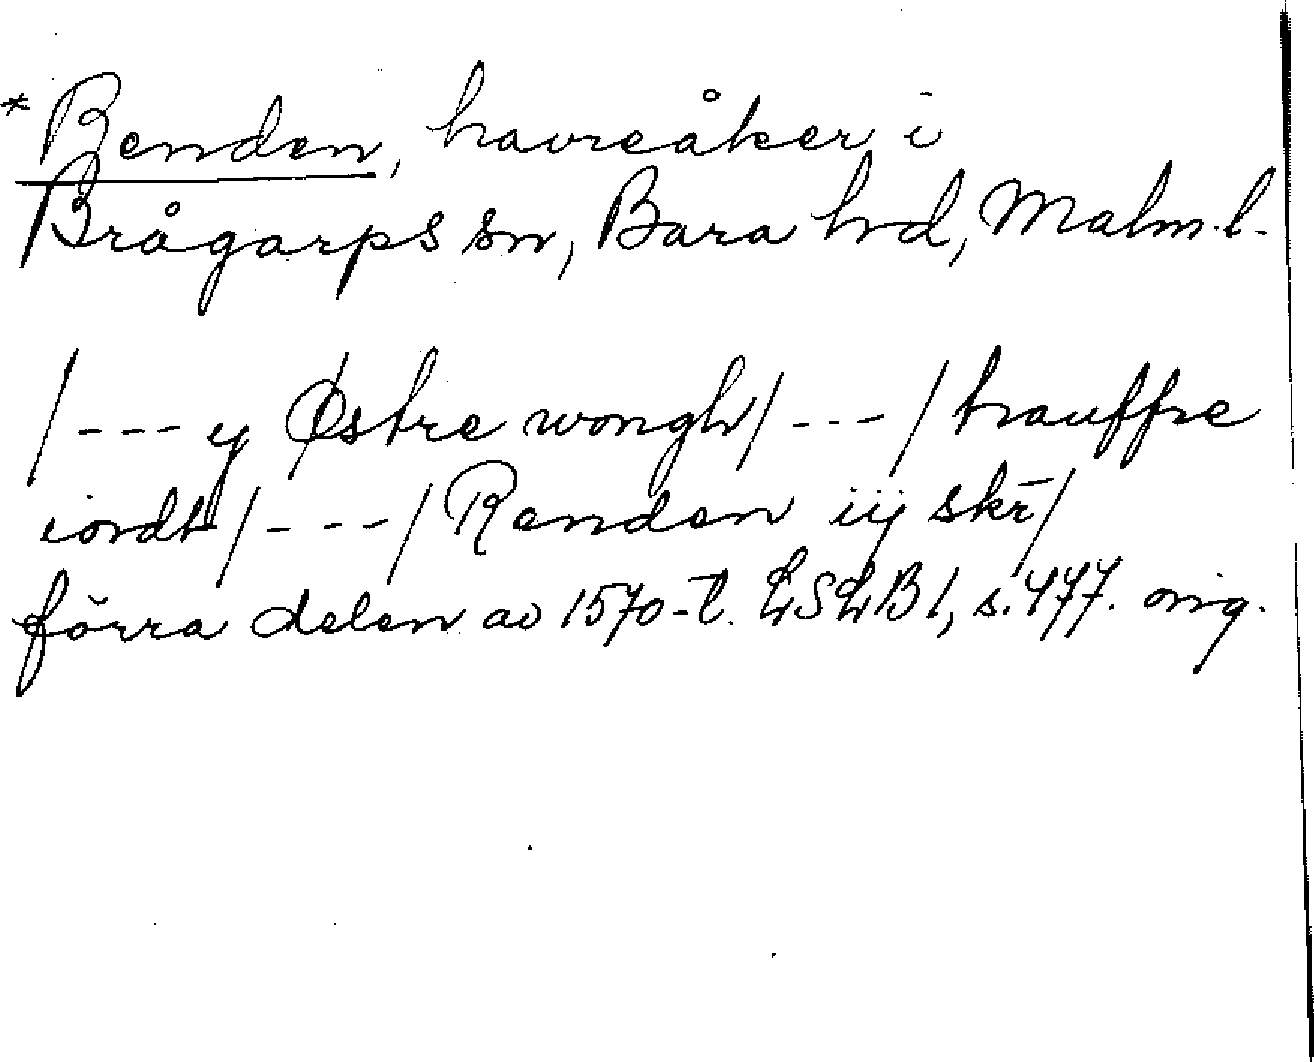 * Renden, havreåker i
Brågarps sn, Bara hd, Malm. l.
/---y Østre wongh/---/hauffre
iordt/---/Renden iij skr̄/
förra delen av 1570-t. LSLB 1, s. 477. orig.